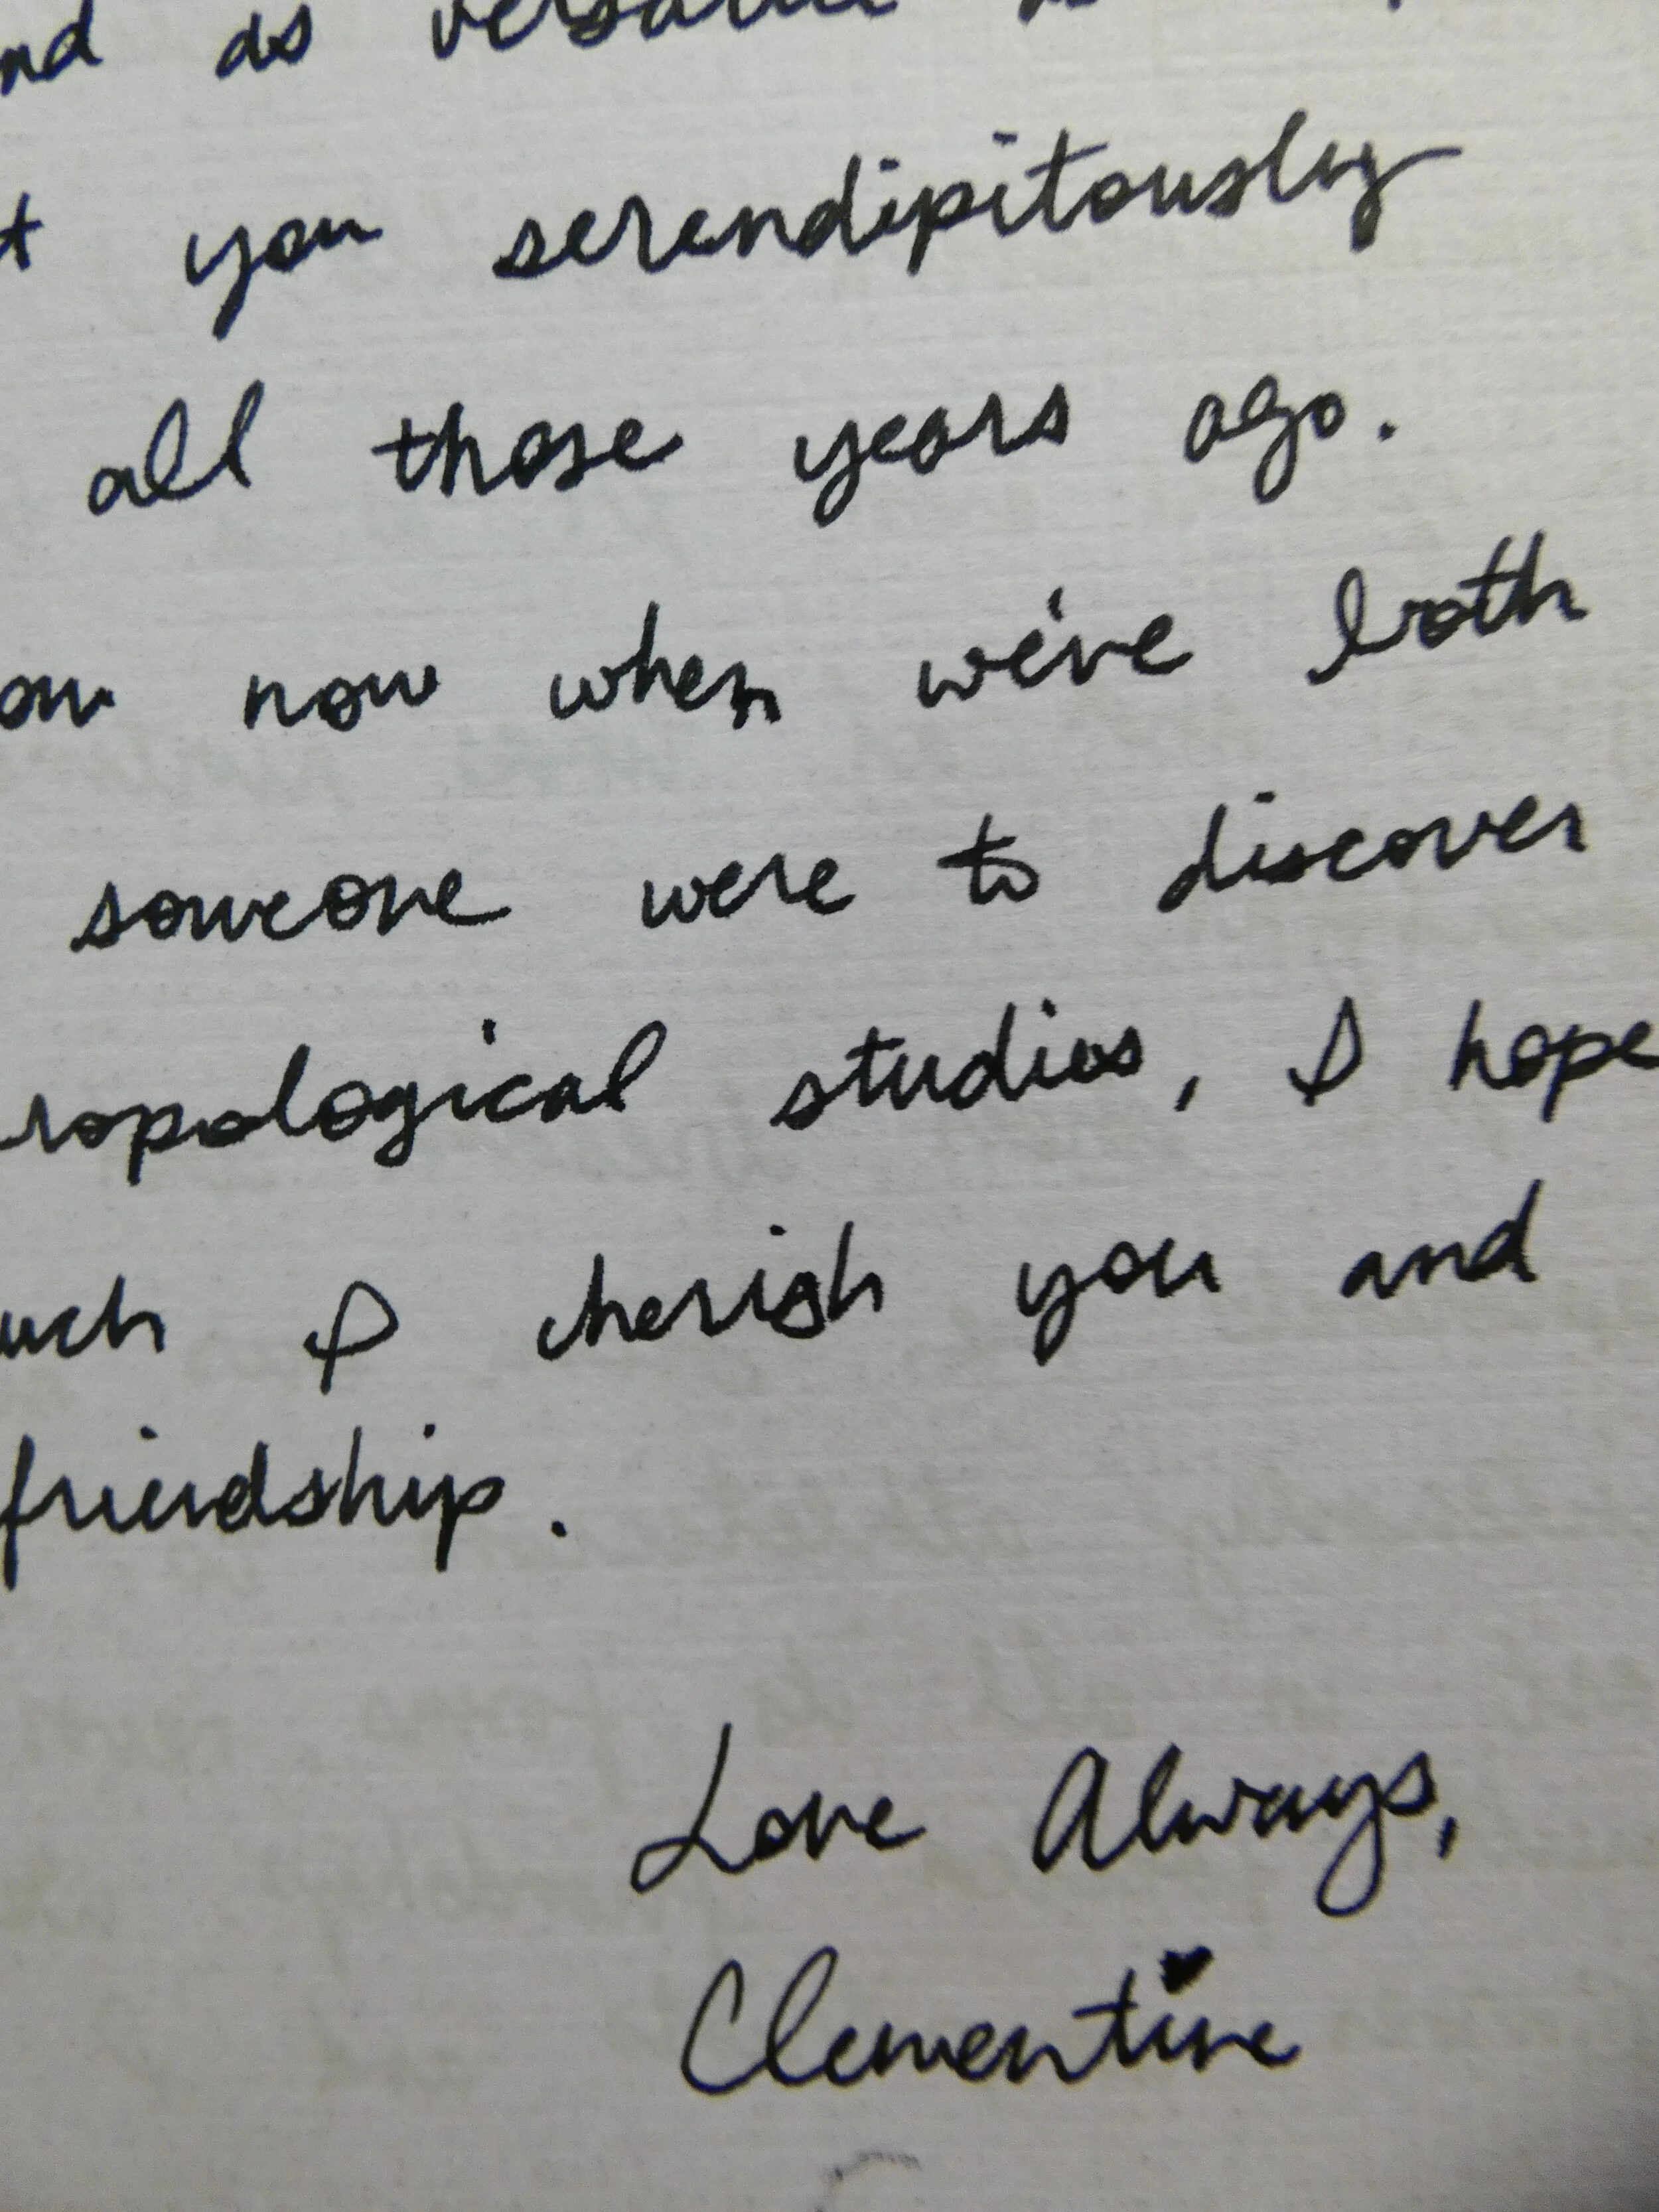 as
you serendipitously
all those years ago.
now when we've both
someone were to discover
ropological studies, I hope
uch I cherish you and
friendship.
Love Always,
Clementine